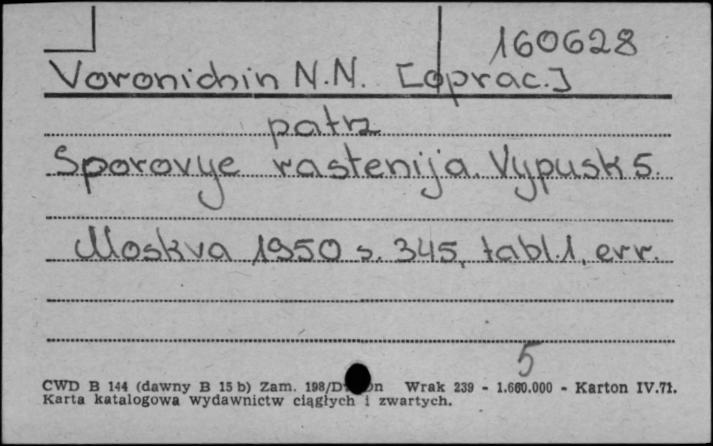 160628
Voronichin N.N. [oprac.]
patrz
Sporovye rastenija. Vypusk 5.
Moskva 1950 s. 345, tabl. 1, err.
5
CWD B 144 (dawny B 15 b) Zam. 198/D Wrak 239 - 1.660.000 - Karton IV.71.
Karta katalogowa wydawnictw ciągłych i zwartych.